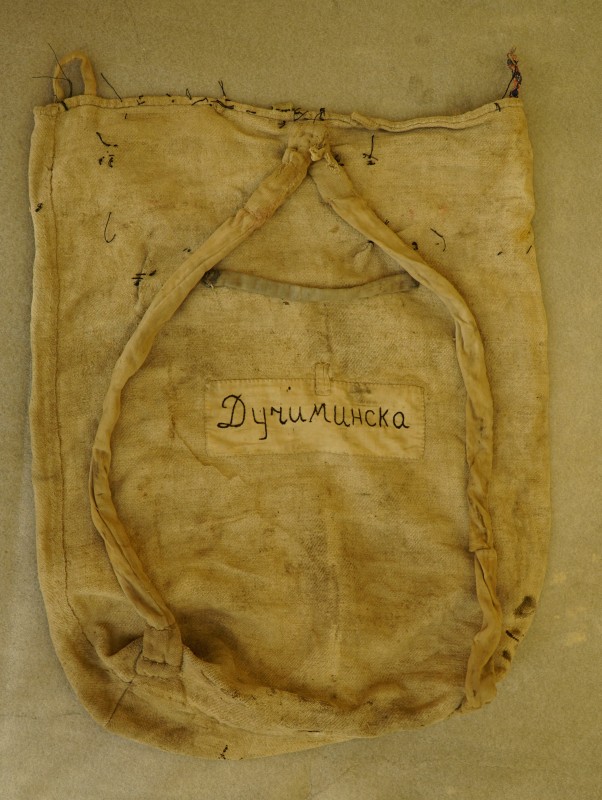 Дучиминска